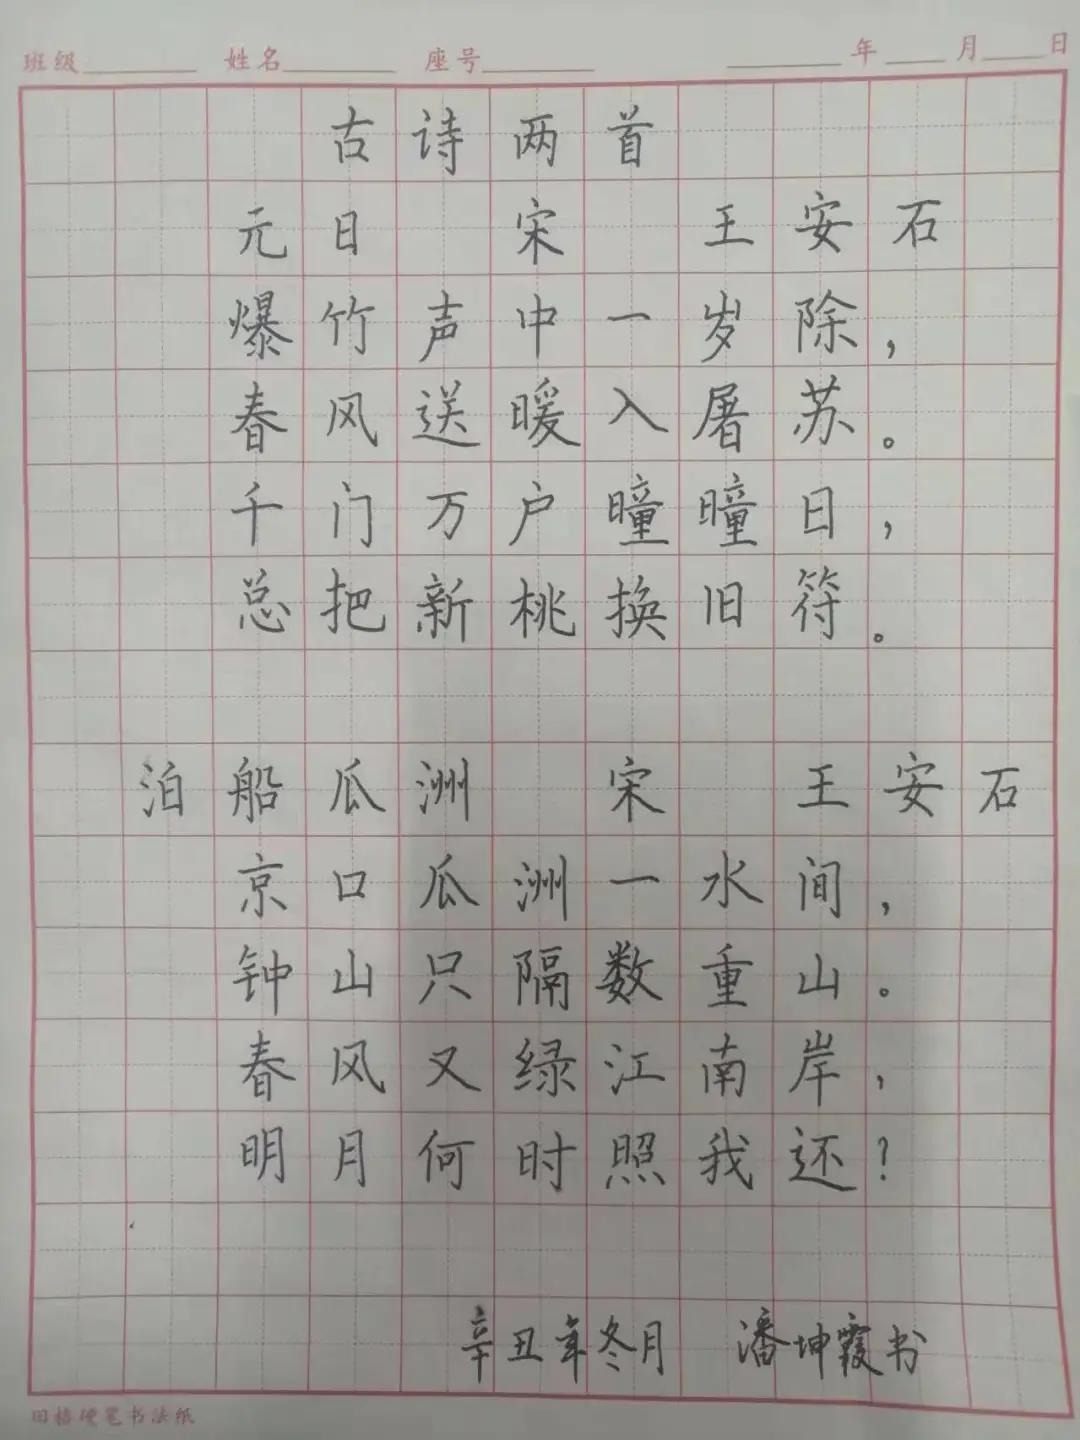 班级 姓名 座号 年 月 日
古诗两首
元日 宋 王安石
爆竹声中一岁除，
春风送暖入屠苏。
千门万户曈曈日，
总把新桃换旧符。
泊船瓜洲 宋 王安石
京口瓜洲一水间，
钟山只隔数重山。
春风又绿江南岸，
明月何时照我还？
辛丑年冬月 潘坤霞书
田格硬笔书法纸